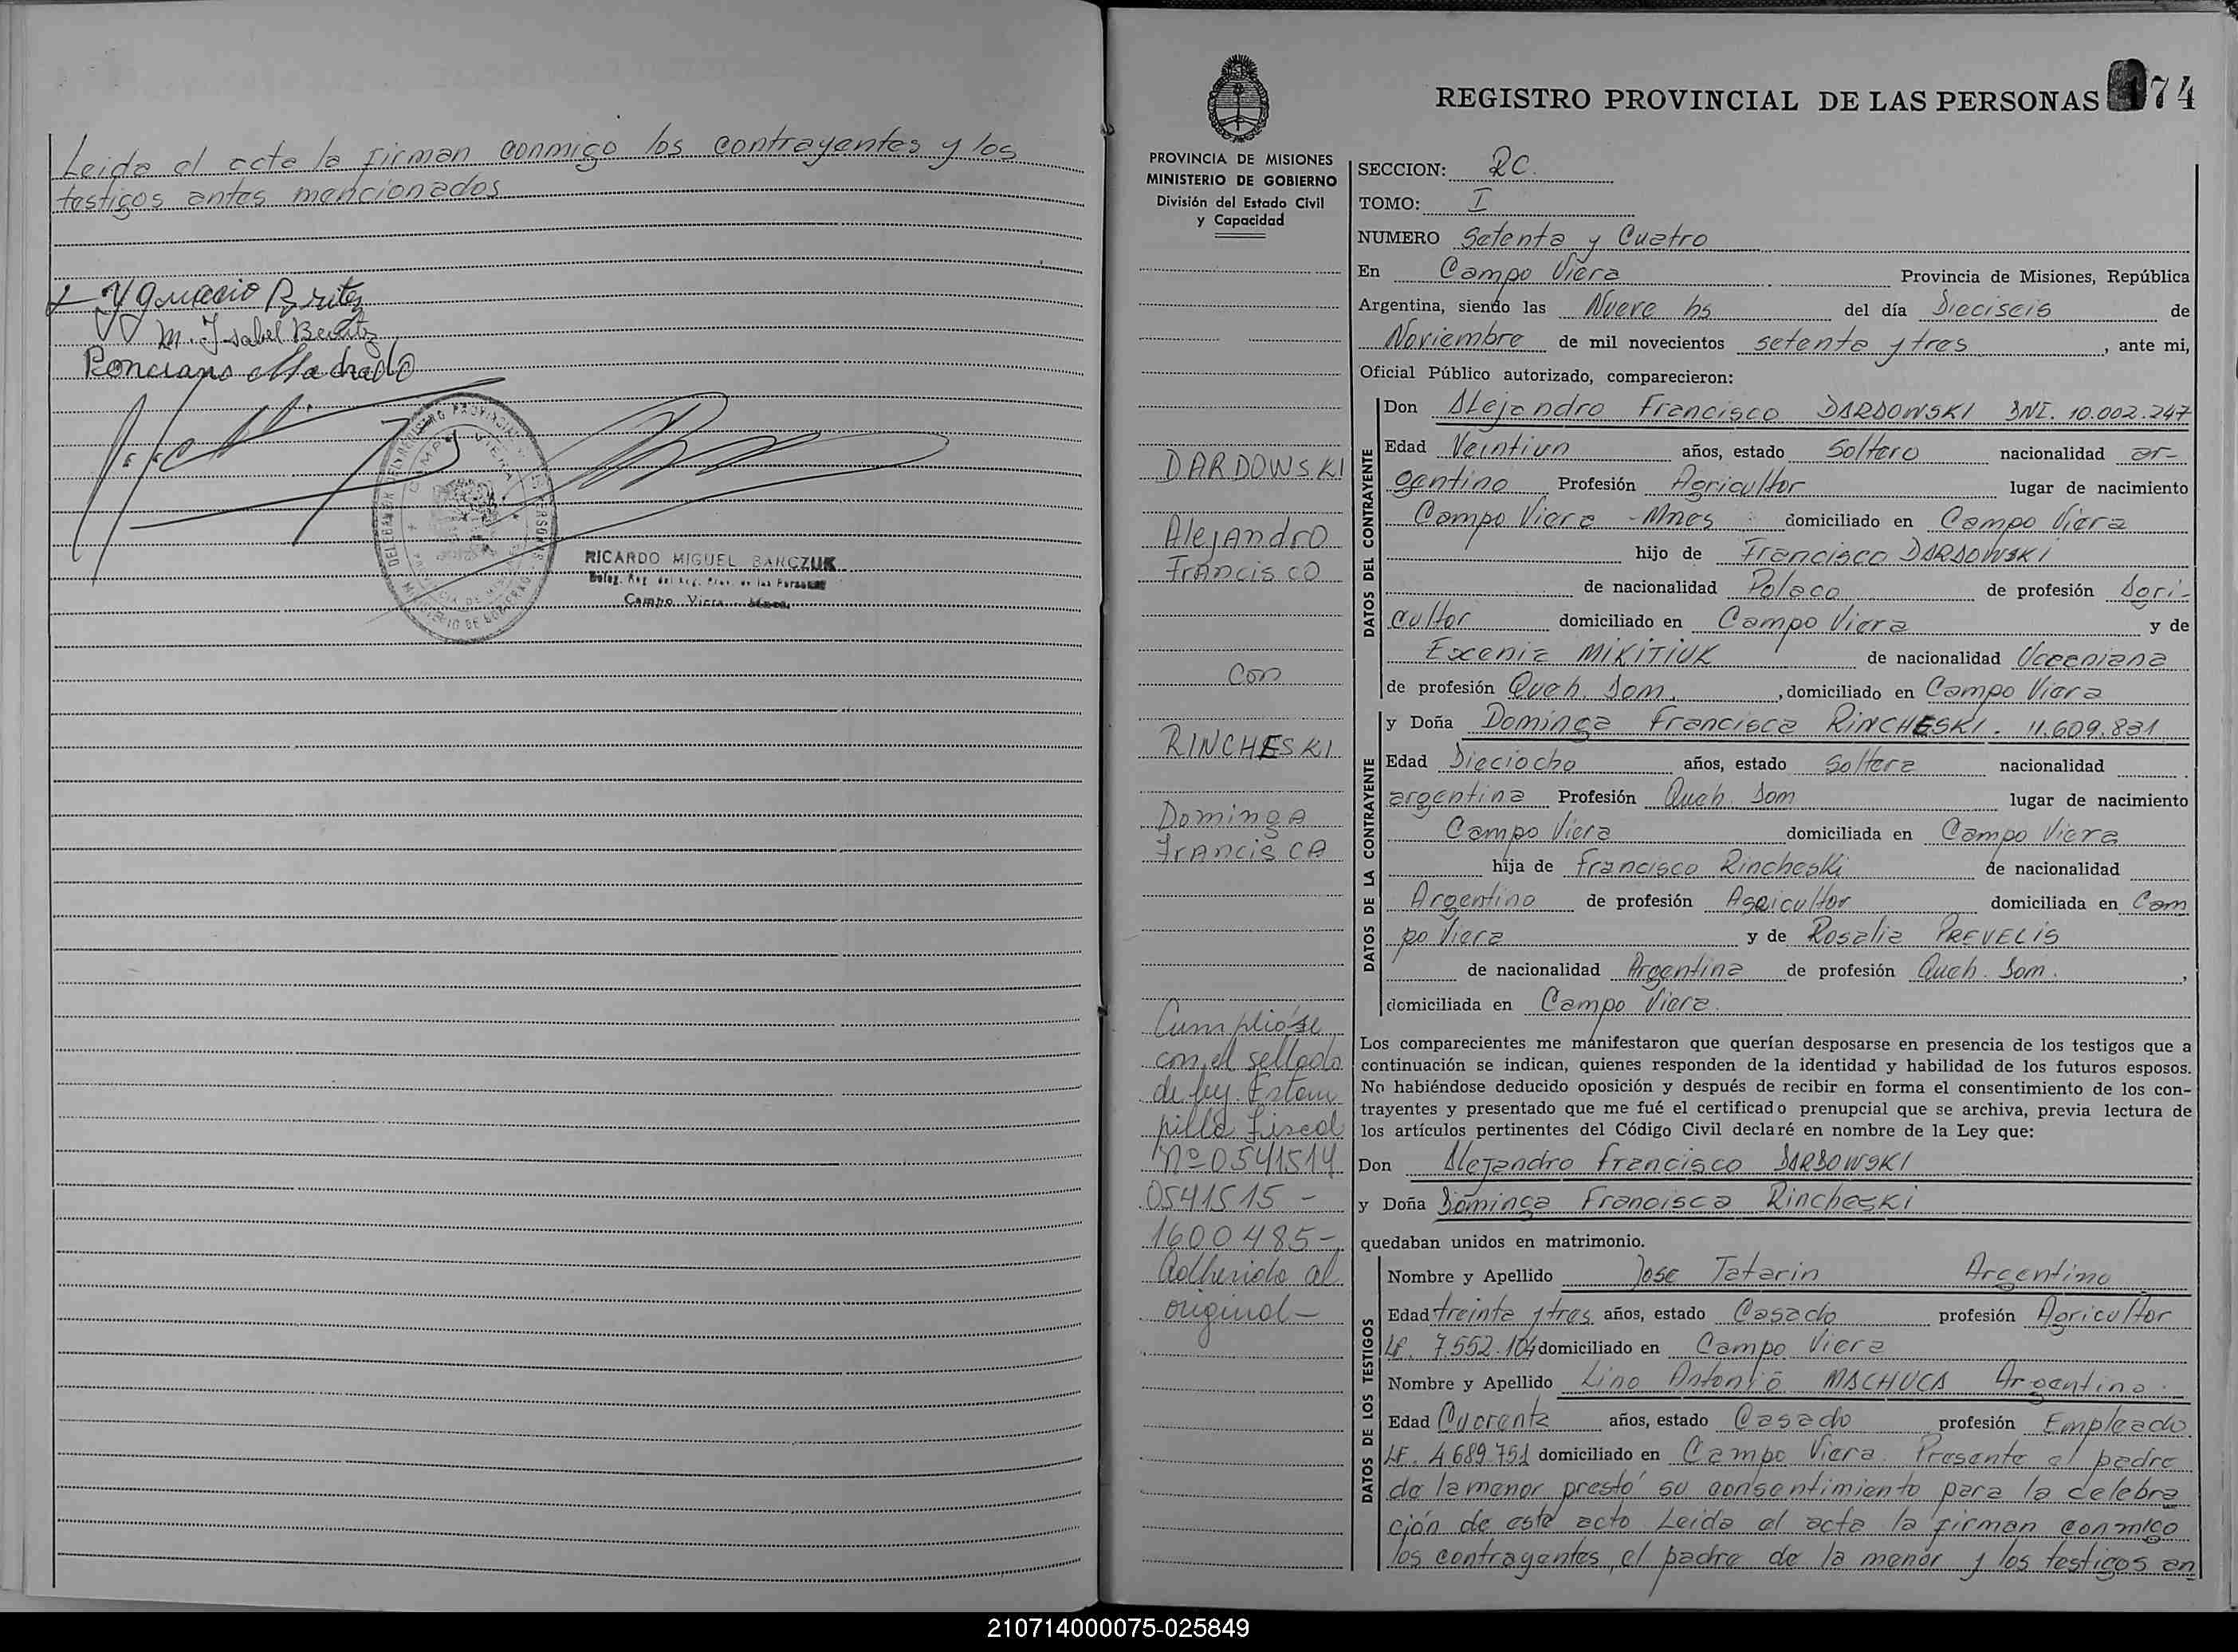 Leida el acta la firman conmigo los contrayentes y los
testigos antes mencionados
Ygnacio Britez
M. Isabel Benitez
Ponciano Machado
CAMPO VIERA
MINISTERIO DE GOBIERNO
RICARDO MIGUEL BARCZUK
Campo Viera - Mnes.
REGISTRO PROVINCIAL DE LAS PERSONAS 74
PROVINCIA DE MISIONES
MINISTERIO DE GOBIERNO
División del Estado Civil
y Capacidad
DARDOWSKI
Alejandro
Francisco
con
RINCHESKI
Dominga
Francisca
Cumplióse
con el sellado
de ley. Estam
pilla fiscal
Nº 0541514
0541515 -
1600485 -
Adherido al
original -
SECCION: RC.
TOMO: I
NUMERO Setenta y Cuatro
En Campo Viera Provincia de Misiones, República
Argentina, siendo las Nueve hs del día Dieciseis de
Noviembre de mil novecientos setenta y tres, ante mi,
Oficial Público autorizado, comparecieron:
DATOS DEL CONTRAYENTE
Don Alejandro Francisco DARDOWSKI DNI. 10.002.247
Edad Veintiun años, estado Soltero nacionalidad ar-
gentino Profesión Agricultor lugar de nacimiento
Campo Viera - Mnes domiciliado en Campo Viera
hijo de Francisco DARDOWSKI
de nacionalidad Polaco de profesión Agri-
cultor domiciliado en Campo Viera y de
Exenia MIKITIUK de nacionalidad Ucraniana
de profesión Queh. Dom., domiciliado en Campo Viera
DATOS DE LA CONTRAYENTE
y Doña Dominga Francisca RINCHESKI. 11.609.831
Edad Dieciocho años, estado Soltera nacionalidad
argentina Profesión Queh. Dom lugar de nacimiento
Campo Viera domiciliada en Campo Viera
hija de Francisco Rincheski de nacionalidad
Argentino de profesión Agricultor domiciliada en Cam
po Viera y de Rosalia PREVELIS
de nacionalidad Argentina de profesión Queh. Dom.,
domiciliada en Campo Viera.
Los comparecientes me manifestaron que querían desposarse en presencia de los testigos que a
continuación se indican, quienes responden de la identidad y habilidad de los futuros esposos.
No habiéndose deducido oposición y después de recibir en forma el consentimiento de los con-
trayentes y presentado que me fué el certificado prenupcial que se archiva, previa lectura de
los artículos pertinentes del Código Civil declaré en nombre de la Ley que:
Don Alejandro Francisco DARDOWSKI
y Doña Dominga Francisca Rincheski
quedaban unidos en matrimonio.
DATOS DE LOS TESTIGOS
Nombre y Apellido Jose Tatarin Argentino
Edad treinta y tres años, estado Casado profesión Agricultor
LE. 7.552.104 domiciliado en Campo Viera
Nombre y Apellido Lino Antonio MACHUCA Argentino.
Edad Cuarenta años, estado Casado profesión Empleado
LE. 4.689.751 domiciliado en Campo Viera. Presente el padre
de la menor prestó su consentimiento para la celebra
ción de este acto Leida el acta la firman conmigo
los contrayentes, el padre de la menor y los testigos an
210714000075-025849